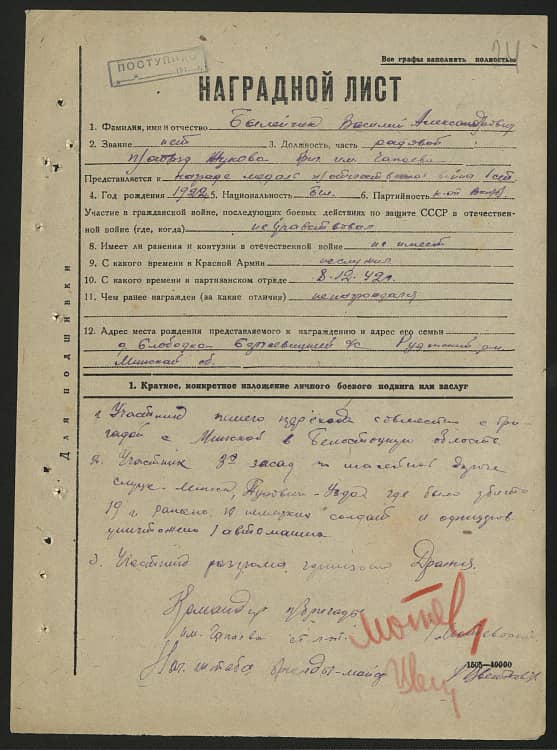 24
ПОСТУПИЛО
Все графы заполнять полностью
НАГРАДНОЙ ЛИСТ
1. Фамилия, имя и отчество Былейчик Василий Александрович
2. Звание нет 3. Должность, часть рядовой
п/отряд Жукова бриг. им. Чапаева
Представляется к награде медаль
4. Год рождения 1922 5. Национальность бел. 6. Партийность
Участие в гражданской войне, последующих боевых действиях по защите СССР в отечествен-
ной войне (где, когда) не участвовал
8. Имеет ли ранения и контузии в отечественной войне не имеет
9. С какого времени в Красной Армии не служил
10. С какого времени в партизанском отряде 8-12-42г.
11. Чем ранее награжден (за какие отличия) не награждался
12. Адрес места рождения представляемого к награждению и адрес его семьи
д. Слободка с/с Руденский р-н
Минской об.
Для подшивки
1. Краткое, конкретное изложение личного боевого подвига или заслуг
1. Участник пешего перехода совместно с бри-
гадой с Минской в Белостоцкую область
2. Участник 3х засад на шоссейной дороге
Слуцк-Минск, где было убито
19 г. ранено 10 немецких солдат и офицеров
уничтожено 1 автомашина
3. Участник разгрома гарнизона
Командир п/бригады
им. Чапаева ст. л-т.
Нач. штаба бригады-майор
1505—40000